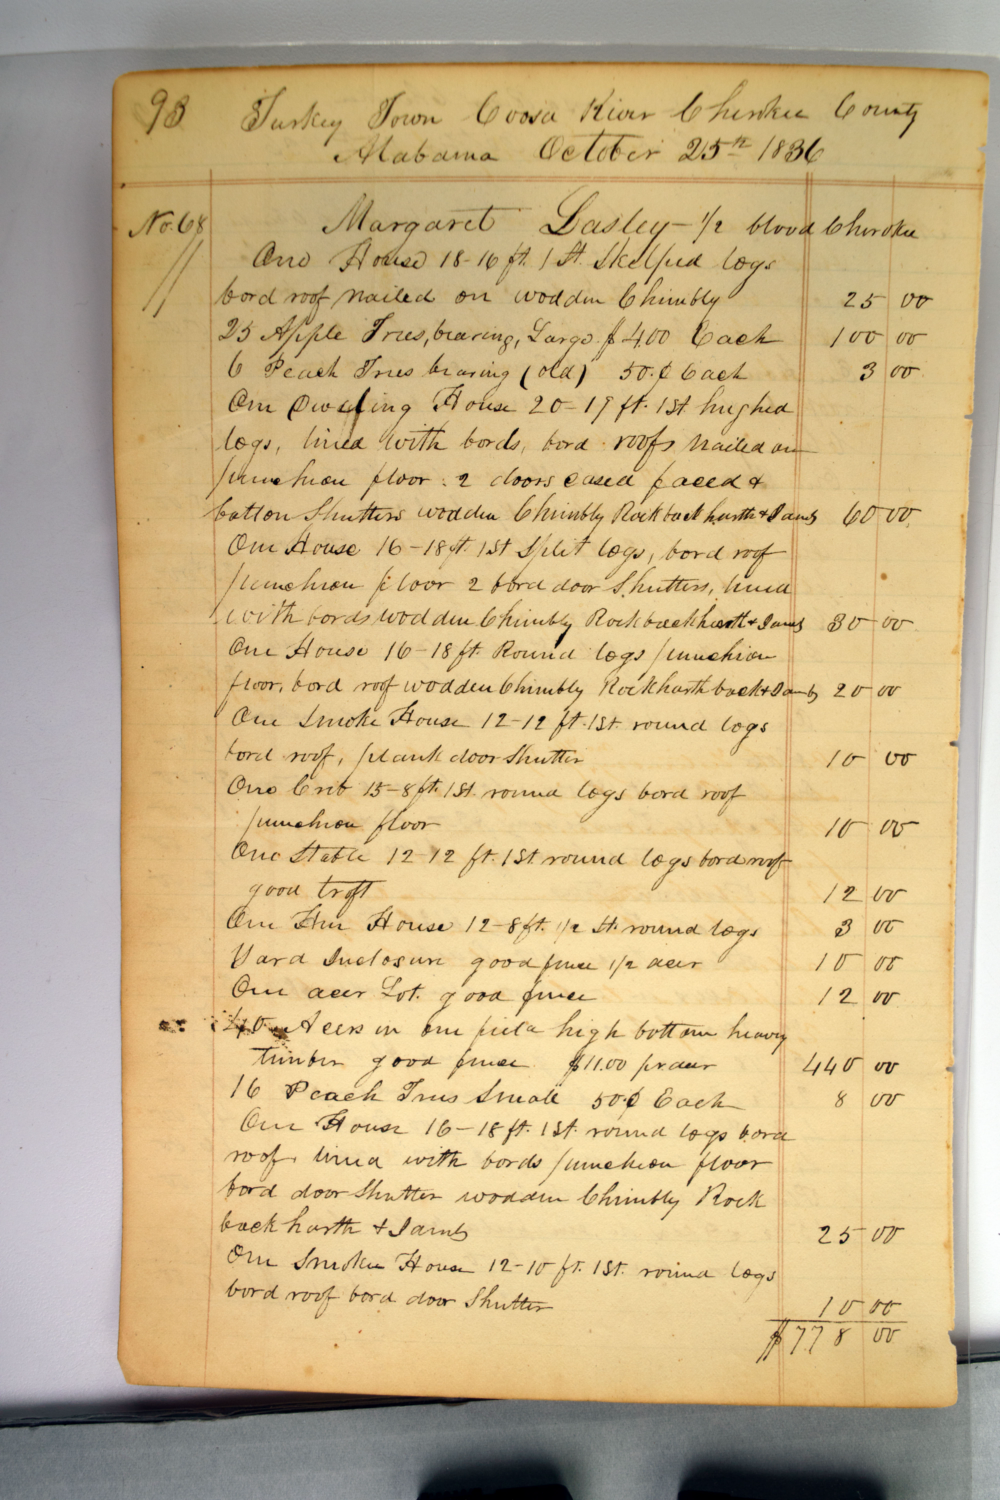 93 Turkey Town Coosa River Cherokee County
Alabama October 25th 1836
No. 68 Margaret Lasley – 1/2 blood Cherokee
One House 18-16 ft. 1 St. Skelped logs
bord roof nailed on wodden Chimbly 25 00
25 Apple Trees, bearing, Large $4.00 Each 100 00
6 Peach Trees bearing (old) 50.¢ Each 3 00
One Dwelling House 20-19 ft. 1st hughed
logs, lined with bords, bord roofs nailed on
puncheon floor. 2 doors cased faced &
batton Shutters wodden Chimbly Rock back harth & Jambs 60 00
One House 16-18 ft. 1st Split logs, bord roof
puncheon floor 2 bord door Shutters, lined
with bords wodden Chimbly Rock back harth & Jambs 30 00
One House 16-18 ft. Round logs puncheon
floor, bord roof wodden Chimbly Rock harth back & Jambs 20 00
One Smoke House 12-12 ft. 1st. round logs
bord roof, plank door Shutter 10 00
One Crib 15-8 ft. 1st. round logs bord roof
puncheon floor 10 00
One Stable 12-12 ft. 1st round logs bord roof
good troft 12 00
One Hen House 12-8 ft. 1/2 St. round logs 3 00
Yard Inclosure good fence 1/2 acer 10 00
One acer Lot. good fence 12 00
40 Acers in one field high bottom heavy
timber good fence $11.00 pr acer 440 00
16 Peach Trees Small 50¢ Each 8 00
One House 16-18 ft. 1st. round logs bord
roof. lined with bords puncheon floor
bord door Shutter wodden Chimbly Rock
back harth & Jambs 25 00
One Smoke House 12-10 ft. 1st. round logs
bord roof bord door Shutter 10 00
$778 00